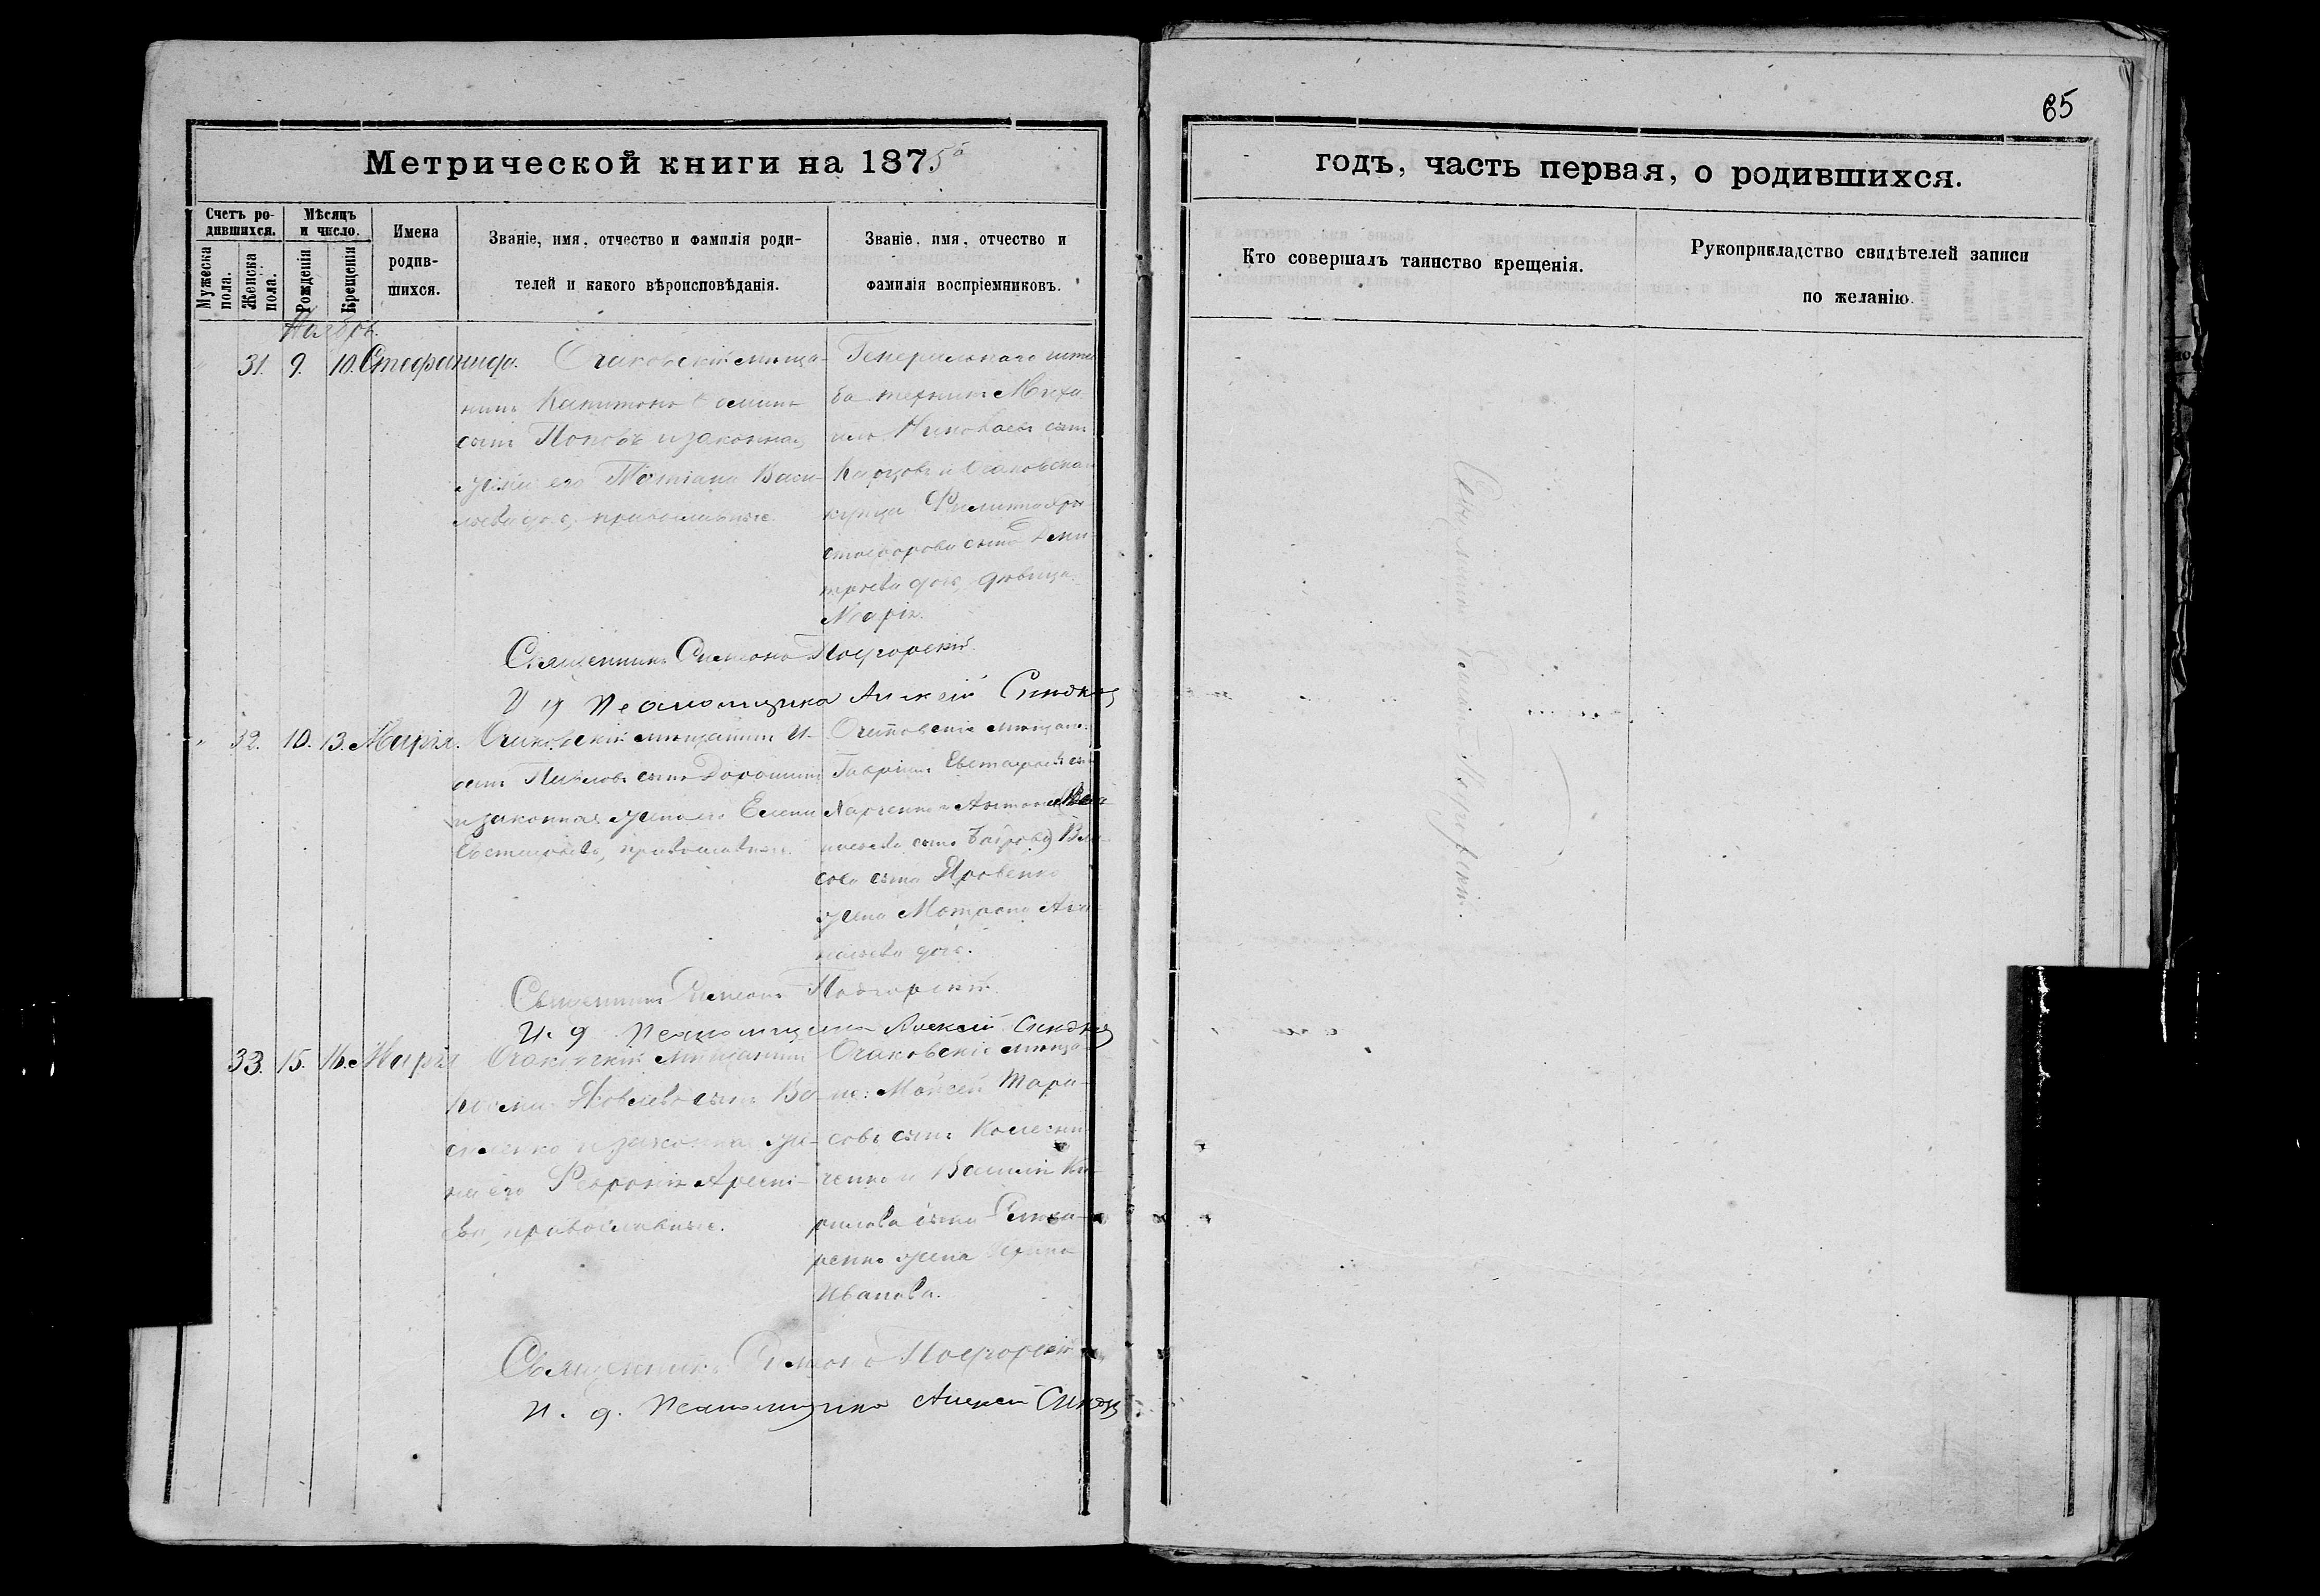 65
Метрической книги на 1875й
годъ, часть первая, о родившихся.
Счетъ ро-
дившихся.
Мѣсяцъ
и число.
Мужеска
пола.
Женска
пола.
Рожденія
Крещенія
Имена
родив-
шихся.
Званіе, имя, отчество и фамилія роди-
телей и какого вѣроисповѣданія.
Званіе, имя, отчество и
фамилія воспріемниковъ.
Кто совершалъ таинство крещенія.
Рукоприкладство свидѣтелей записи
по желанію.
Ноябрь.
31. 9. 10. Стефанида.
Очаковскій мѣща-
нинъ Капитонъ
сынъ Поповъ и законная
жена его Татіана Васи-
льева доч, православные.
Генеральнаго шта
ба техникъ Миха
илъ Николаевъ сынъ
Карцовъ и Очаковска
купца Филиппа Хри
стофорова сына Дими
тріева дочь, дѣвица
Марія.
Священникъ Симеонъ Подгорскій
И д Псаломщика Алексій
32. 10. 13. Марія.
Очаковскій мѣщанинъ И-
сынъ
и законная жена его Елена
Евстафіева, православные.
Очаковскіе мѣщане:
Гавріилъ Евстафіевъ сы
Харченко и
сына Вла-
сова сына Яровенко
жена Матрона Ага-
дочь.
Священникъ Симеонъ Подгорскій
И. д Псаломщика Алексій
33. 15. 16. Марія
Очаковскій мѣщанинъ
Косма Яковлевъ сынъ Ва-
силенко и законная же-
на его Февронія Арсені-
ева, православные.
Очаковскіе мѣща-
не: Моисей Тара-
совъ сынъ Колесни
ченко и Василія Ки-
рилова сына
ренко жена Ирина
Иванова.
Священникъ Симеонъ Подгорскій
И. д. Псаломщика Алексій